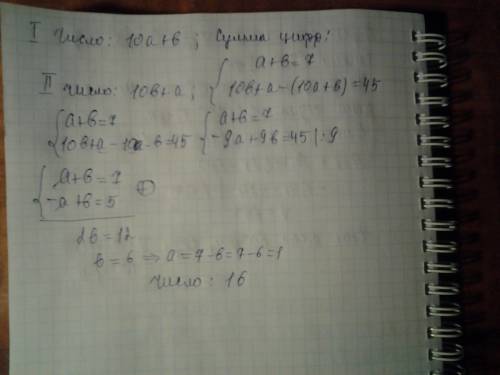 I число: 10a+b ; Сумма цифр:
{ a+b=7
II число: 10b+a ; 10b+a-(10a+b)=45
{ a+b=7 { a+b=7
10b+a-10a-b=45 -9a+9b=45|:9
{ a+b=7
-a+b=5 (+)
2b=12
b=6 ⇒ a=7-b=7-6=1
число: 16